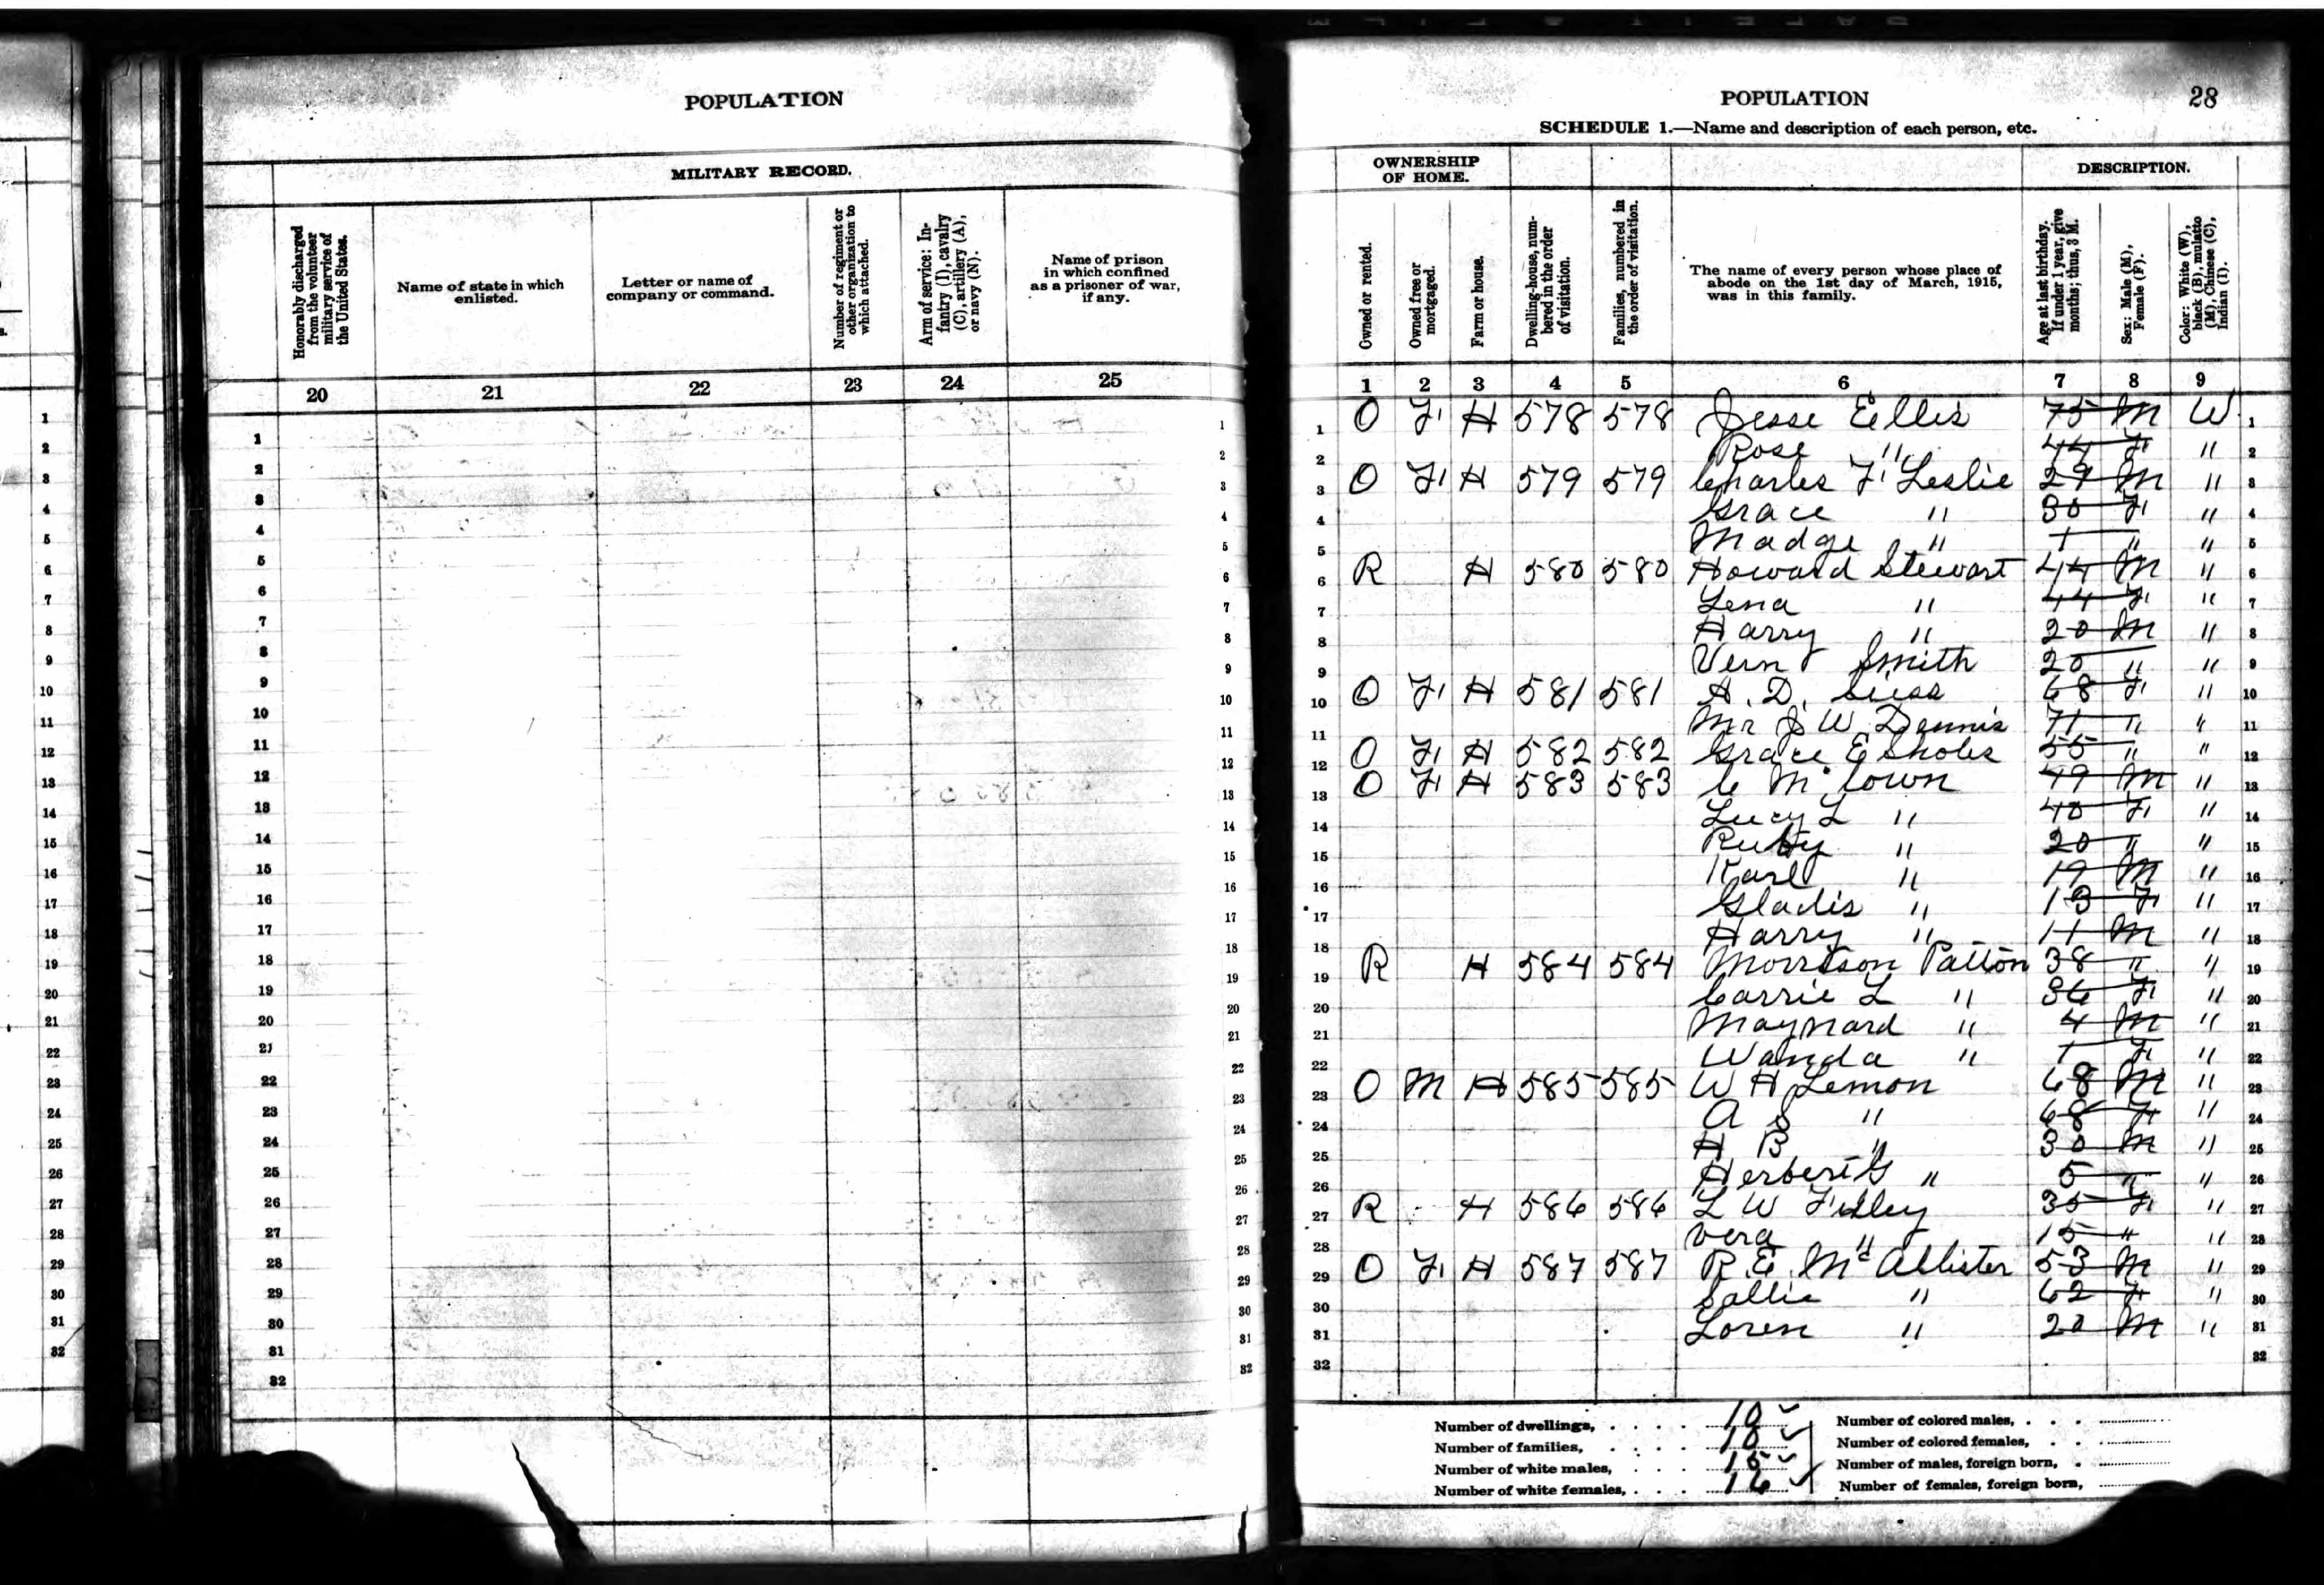 POPULATION
MILITARY RECORD.
Honorably discharged from the volunteer military service of the United States.
Name of state in which enlisted.
Letter or name of company or command.
Number of regiment or other organization to which attached.
Arm of service: Infantry (I), cavalry (C), artillery (A), or navy (N).
Name of prison in which confined as a prisoner of war, if any.
20 21 22 23 24 25
1
2
3
4
5
6
7
8
9
10
11
12
13
14
15
16
17
18
19
20
21
22
23
24
25
26
27
28
29
30
31
32
POPULATION 28
SCHEDULE 1.—Name and description of each person, etc.
OWNERSHIP OF HOME.
DESCRIPTION.
Owned or rented.
Owned free or mortgaged.
Farm or house.
Dwelling-house, numbered in the order of visitation.
Families, numbered in the order of visitation.
The name of every person whose place of abode on the 1st day of March, 1915, was in this family.
Age at last birthday. If under 1 year, give months; thus, 3 M.
Sex: Male (M), Female (F).
Color: White (W), black (B), mulatto (M), Chinese (C), Indian (I).
1 2 3 4 5 6 7 8 9
1 O F H 578 578 Jesse Ellis 75 M W 1
2 Rose " 44 F " 2
3 O F H 579 579 Charles F Leslie 29 M " 3
4 Grace " 30 F " 4
5 Madge " 1 " " 5
6 R H 580 580 Howard Stewart 44 M " 6
7 Lena " 44 F " 7
8 Harry " 20 M " 8
9 Vern Smith 20 " " 9
10 O F H 581 581 A. D. 68 F " 10
11 J W Dennis 71 " " 11
12 O F H 582 582 Grace E Sholes 55 " " 12
13 O F H 583 583 C M Cown 49 M " 13
14 Lucy L " 40 F " 14
15 Ruby " 20 " " 15
16 Karl " 19 M " 16
17 Gladis " 13 F " 17
18 Harry " 11 M " 18
19 R H 584 584 Morrison Patton 38 " " 19
20 Carrie L " 36 F " 20
21 Maynard " 4 M " 21
22 Wanda " 1 F " 22
23 O M H 585 585 W H Lemon 68 M " 23
24 A S " 68 F " 24
25 H B " 30 M " 25
26 Herbert G " 5 " " 26
27 R H 586 586 L W 35 F " 27
28 Vera " 15 " " 28
29 O F H 587 587 R. E. McAllister 53 M " 29
30 Sallie " 62 F " 30
31 Loren " 20 M " 31
32 32
Number of dwellings, . . . . 10
Number of families, . . . . 10
Number of white males, . . . 15
Number of white females, . . . 16
Number of colored males, . . .
Number of colored females, . .
Number of males, foreign born, .
Number of females, foreign born,